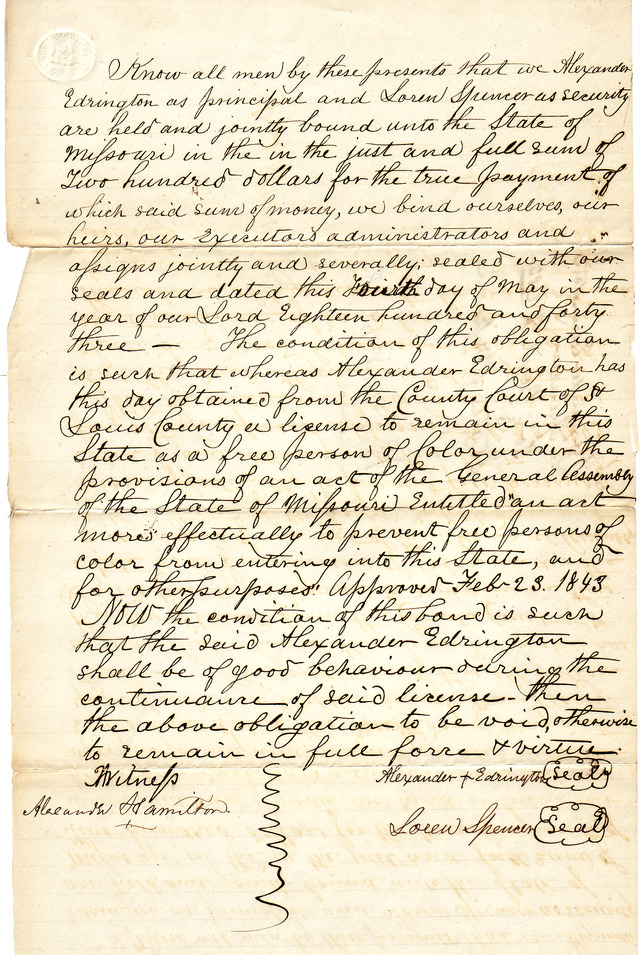 Know all men by these presents that we Alexander
Edrington as principal and Loren Spencer as security
are held and jointly bound unto the State of
Missouri in the in the just and full sum of
Two hundred dollars for the true payment of
which said sum of money, we bind ourselves, our
heirs, our Executors administrators and
assigns jointly and severally; sealed with our
seals and dated this Fourth day of May in the
year of our Lord Eighteen hundred and forty
three — The condition of this obligation
is such that whereas Alexander Edrington has
this day obtained from the County Court of St
Louis County a license to remain in this
State as a free person of Color under the
provisions of an act of the General Assembly
of the State of Missouri Entitled "an act
more effectually to prevent free persons of
color from entering into this State, and
for other purposes" Approved Feb. 23. 1843
Now the condition of this bond is such
that the said Alexander Edrington
shall be of good behaviour during the
continuance of said license - then
the above obligation to be void, otherwise
to remain in full force & virtue.
Witness
Alexander + Edrington Seal
Alexander Hamilton
Loren Spencer Seal